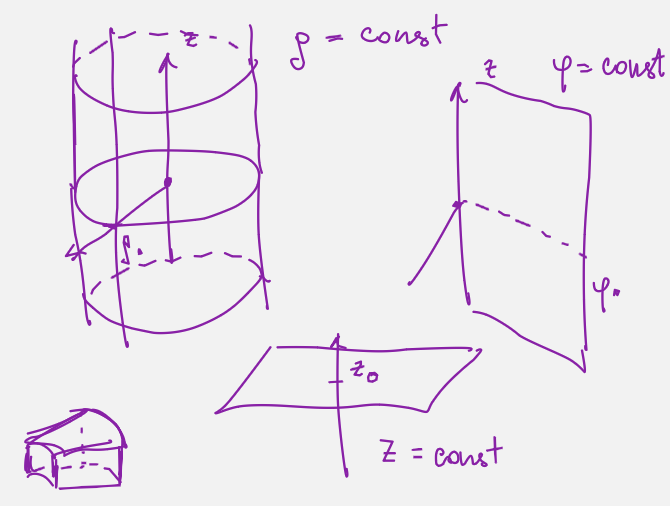 z
ρ = const
ρ₀
z
φ = const
φ₀
z₀
z = const